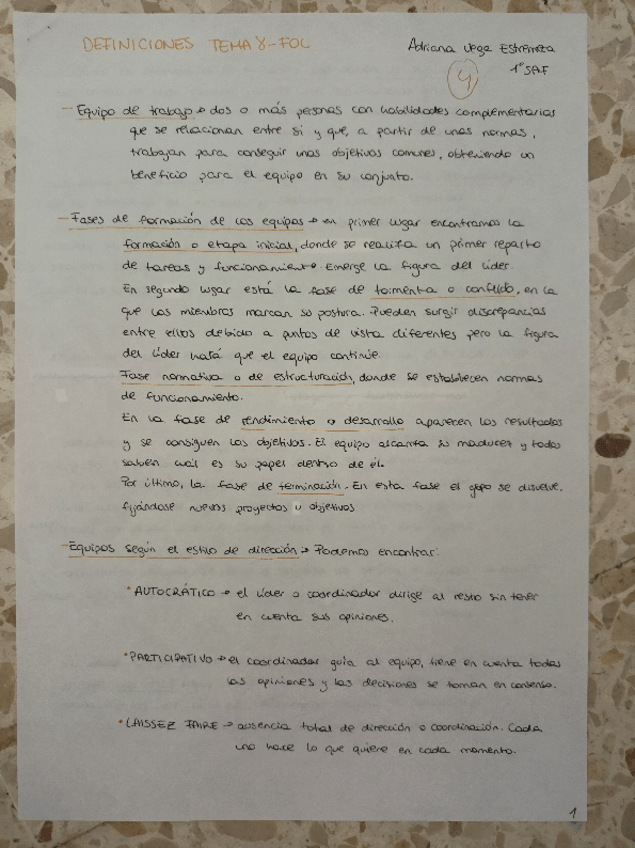 DEFINICIONES TEMA 8-FOL
Adriana Vega Estremera
1º SAF
4
- Equipo de trabajo → dos o más personas con habilidades complementarias
que se relacionan entre si y que, a partir de unas normas,
trabajan para conseguir unos objetivos comunes, obteniendo un
beneficio para el equipo en su conjunto.
- Fases de formación de los equipos → en primer lugar encontramos la
formación o etapa inicial, donde se realiza un primer reparto
de tareas y funcionamiento. Emerge la figura del líder.
En segundo lugar está la fase de tormenta o conflicto, en la
que los miembros marcan su postura. Pueden surgir discrepancias
entre ellos debido a puntos de vista diferentes pero la figura
del líder hará que el equipo continúe.
Fase normativa o de estructuración, donde se establecen normas
de funcionamiento.
En la fase de rendimiento o desarrollo aparecen los resultados
y se consiguen los objetivos. El equipo alcanza su madurez y todos
saben cuál es su papel dentro de él.
Por último, la fase de terminación. En esta fase el grupo se disuelve,
fijándose nuevos proyectos u objetivos
- Equipos según el estilo de dirección → Podemos encontrar:
• AUTOCRÁTICO → el líder o coordinador dirige al resto sin tener
en cuenta sus opiniones.
• PARTICIPATIVO → el coordinador guía al equipo, tiene en cuenta todas
las opiniones y las decisiones se toman en consenso.
• LAISSEZ FAIRE → ausencia total de dirección o coordinación. Cada
uno hace lo que quiere en cada momento.
1